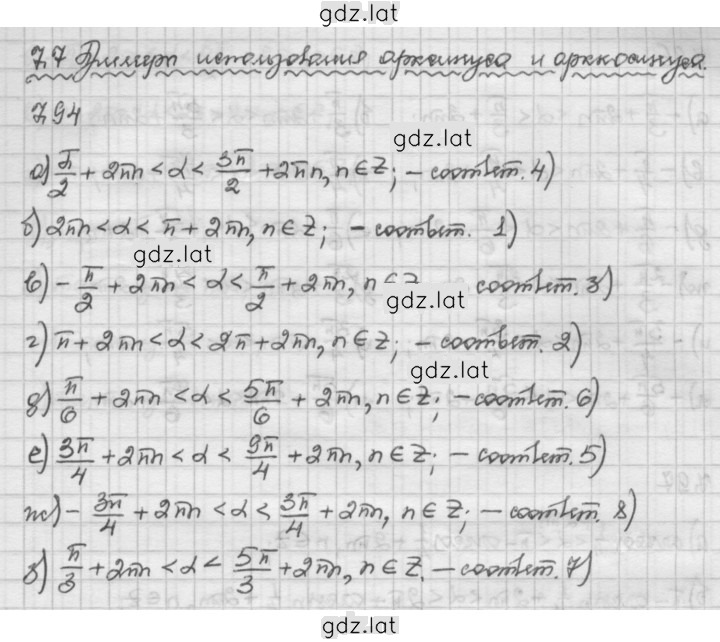 gdz.lat
7.7 Примеры использования арксинуса и арккосинуса.
7.94
gdz.lat
а) π/2 + 2πn < α < 3π/2 + 2πn, n ∈ Z; – соответ. 4)
б) 2πn < α < π + 2πn, n ∈ Z; – соответ. 1)
gdz.lat
в) – π/2 + 2πn < α < π/2 + 2πn, n ∈ Z соответ. 3)
gdz.lat
г) π + 2πn < α < 2π + 2πn, n ∈ Z; – соответ. 2)
gdz.lat
д) π/6 + 2πn < α < 5π/6 + 2πn, n ∈ Z; – соответ. 6)
е) 3π/4 + 2πn < α < 9π/4 + 2πn, n ∈ Z; – соответ. 5)
ж) – 3π/4 + 2πn < α < 3π/4 + 2πn, n ∈ Z; – соответ. 8)
з) π/3 + 2πn < α < 5π/3 + 2πn, n ∈ Z. – соответ. 7)
gdz.lat